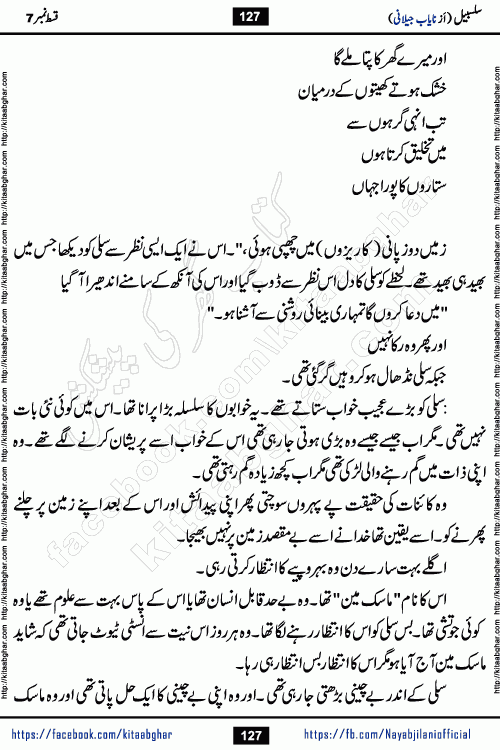 قسط نمبر 7
127
سلسبیل (از نایاب جیلانی)
اور میرے گھر کا پتا ملے گا
خشک ہوتے کھیتوں کے درمیان
تب انہی گرہوں سے
میں تخلیق کرتا ہوں
ستاروں کا پورا جہاں
زمیں دوز پانی (کاریزوں) میں چھپی ہوئی،"۔ اس نے ایک ایسی نظر سے سلی کو دیکھا جس میں
بھید ہی بھید تھے۔ لحظے کو سلی کا دل اس نظر سے ڈوب گیا اور اس کی آنکھ کے سامنے اندھیرا آ گیا
"میں دعا کروں گا تمہاری بینائی روشنی سے آشنا ہو۔"
اور پھر وہ رکا نہیں
جبکہ سلی نڈھال ہو کر وہیں گر گئی تھی۔
:سلی کو بڑے عجیب خواب ستاتے تھے۔ یہ خوابوں کا سلسلہ بڑا پرانا تھا۔ اس میں کوئی نئی بات
نہیں تھی۔ مگر اب جیسے جیسے وہ بڑی ہوتی جا رہی تھی اس کے خواب اسے پریشان کرنے لگے تھے۔ وہ
اپنی ذات میں گم رہنے والی لڑکی تھی مگر اب کچھ زیادہ گم رہتی تھی۔
وہ کائنات کی حقیقت پے پہروں سوچتی پھر اپنی پیدائش اور اس کے بعد اپنے زمین پر چلنے
پھرنے کو۔ اسے یقین تھا خدا نے اسے بے مقصد زمین پر نہیں بھیجا۔
اگلے بہت سارے دن وہ بہروپیے کا انتظار کرتی رہی۔
اس کا نام "ماسک مین" تھا۔ وہ بے حد قابل انسان تھا یا اس کے پاس بہت سے علوم تھے یا وہ
کوئی جوتشی تھا۔ بس سلی کو اس کا انتظار رہنے لگا تھا۔ وہ ہر روز اس نیت سے انسٹی ٹیوٹ جاتی تھی کہ شاید
ماسک مین آج آیا ہو مگر اس کا انتظار بس انتظار ہی رہا۔
سلی کے اندر بے چینی بڑھتی جا رہی تھی۔ اور وہ اپنی بے چینی کا ایک حل پاتی تھی اور وہ ماسک
https://facebook.com/kitaabghar
127
https://fb.com/Nayabjilaniofficial
http://kitaabghar.com http://kitaabghar.com http://kitaabghar.com http://kitaabghar.com http://kitaabghar.com
http://kitaabghar.com http://kitaabghar.com http://kitaabghar.com http://kitaabghar.com http://kitaabghar.com
کتاب گھر کی پیشکش
facebook.com/kitaabghar
kitaabghar.com